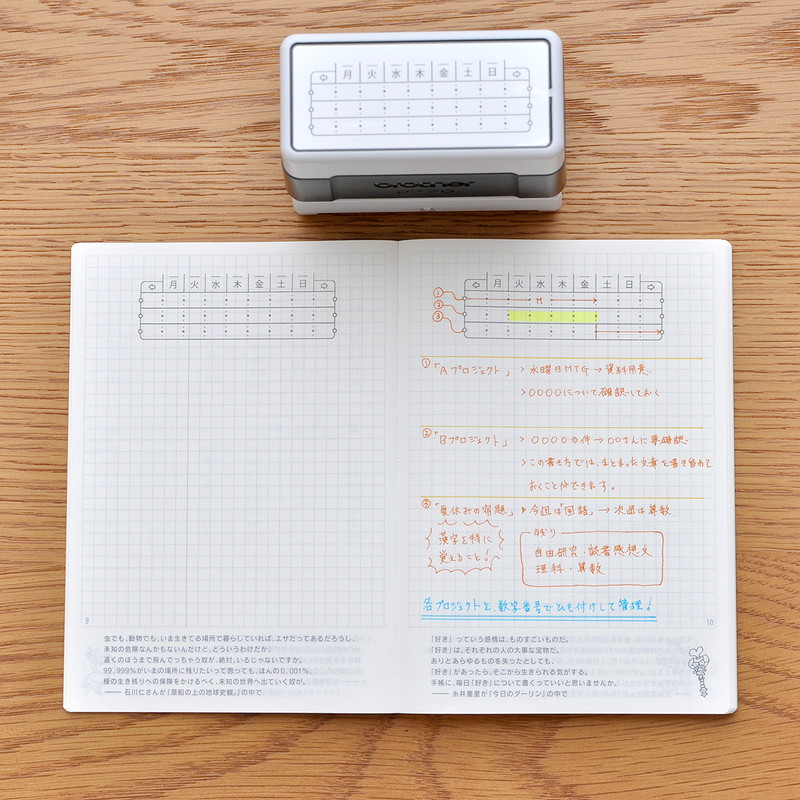 月 火 水 木 金 土 日
brother
月 火 水 木 金 土 日
9
虫でも、動物でも、いま生きてる場所で暮らしていれば、エサだってあるだろうし、
未知の危険なんかもないんだけど、どういうわけだか、
遠くのほうまで飛んでっちゃう奴が、絶対、いるじゃないですか。
99.999%がいまの場所に残りたいって思っても、ほんの0.001%、
種の生き残りへの保険をかけるべく、未知の世界へ出ていく奴が。
―― 石川仁さんが『葦船の上の地球史観。』の中で
月 火 水 木 金 土 日
① M
②
③
①「Aプロジェクト」 > 水曜日MTG → 資料用意
> 〇〇〇〇について確認しておく
②「Bプロジェクト」 > 〇〇〇〇の件 → 〇〇さんに要確認
> この書き方では、まとまった文章を書き留めて
おくことができます。
③「夏休みの宿題」 ▶ 今週は「国語」 → 次週は算数
漢字を特に
覚えること!
残り
自由研究・読書感想文
理科・算数
各プロジェクトと、数字番号でひも付けして管理!
10
「好き」っていう感情は、ものすごいものだ。
「好き」は、それぞれの人の大事な宝物だ。
ありとあらゆるものを失ったとしても、
「好き」があったら、そこから生きられる気がする。
手帳に、毎日「好き」について書くっていいと思いませんか。
―― 糸井重里が『今日のダーリン』の中で